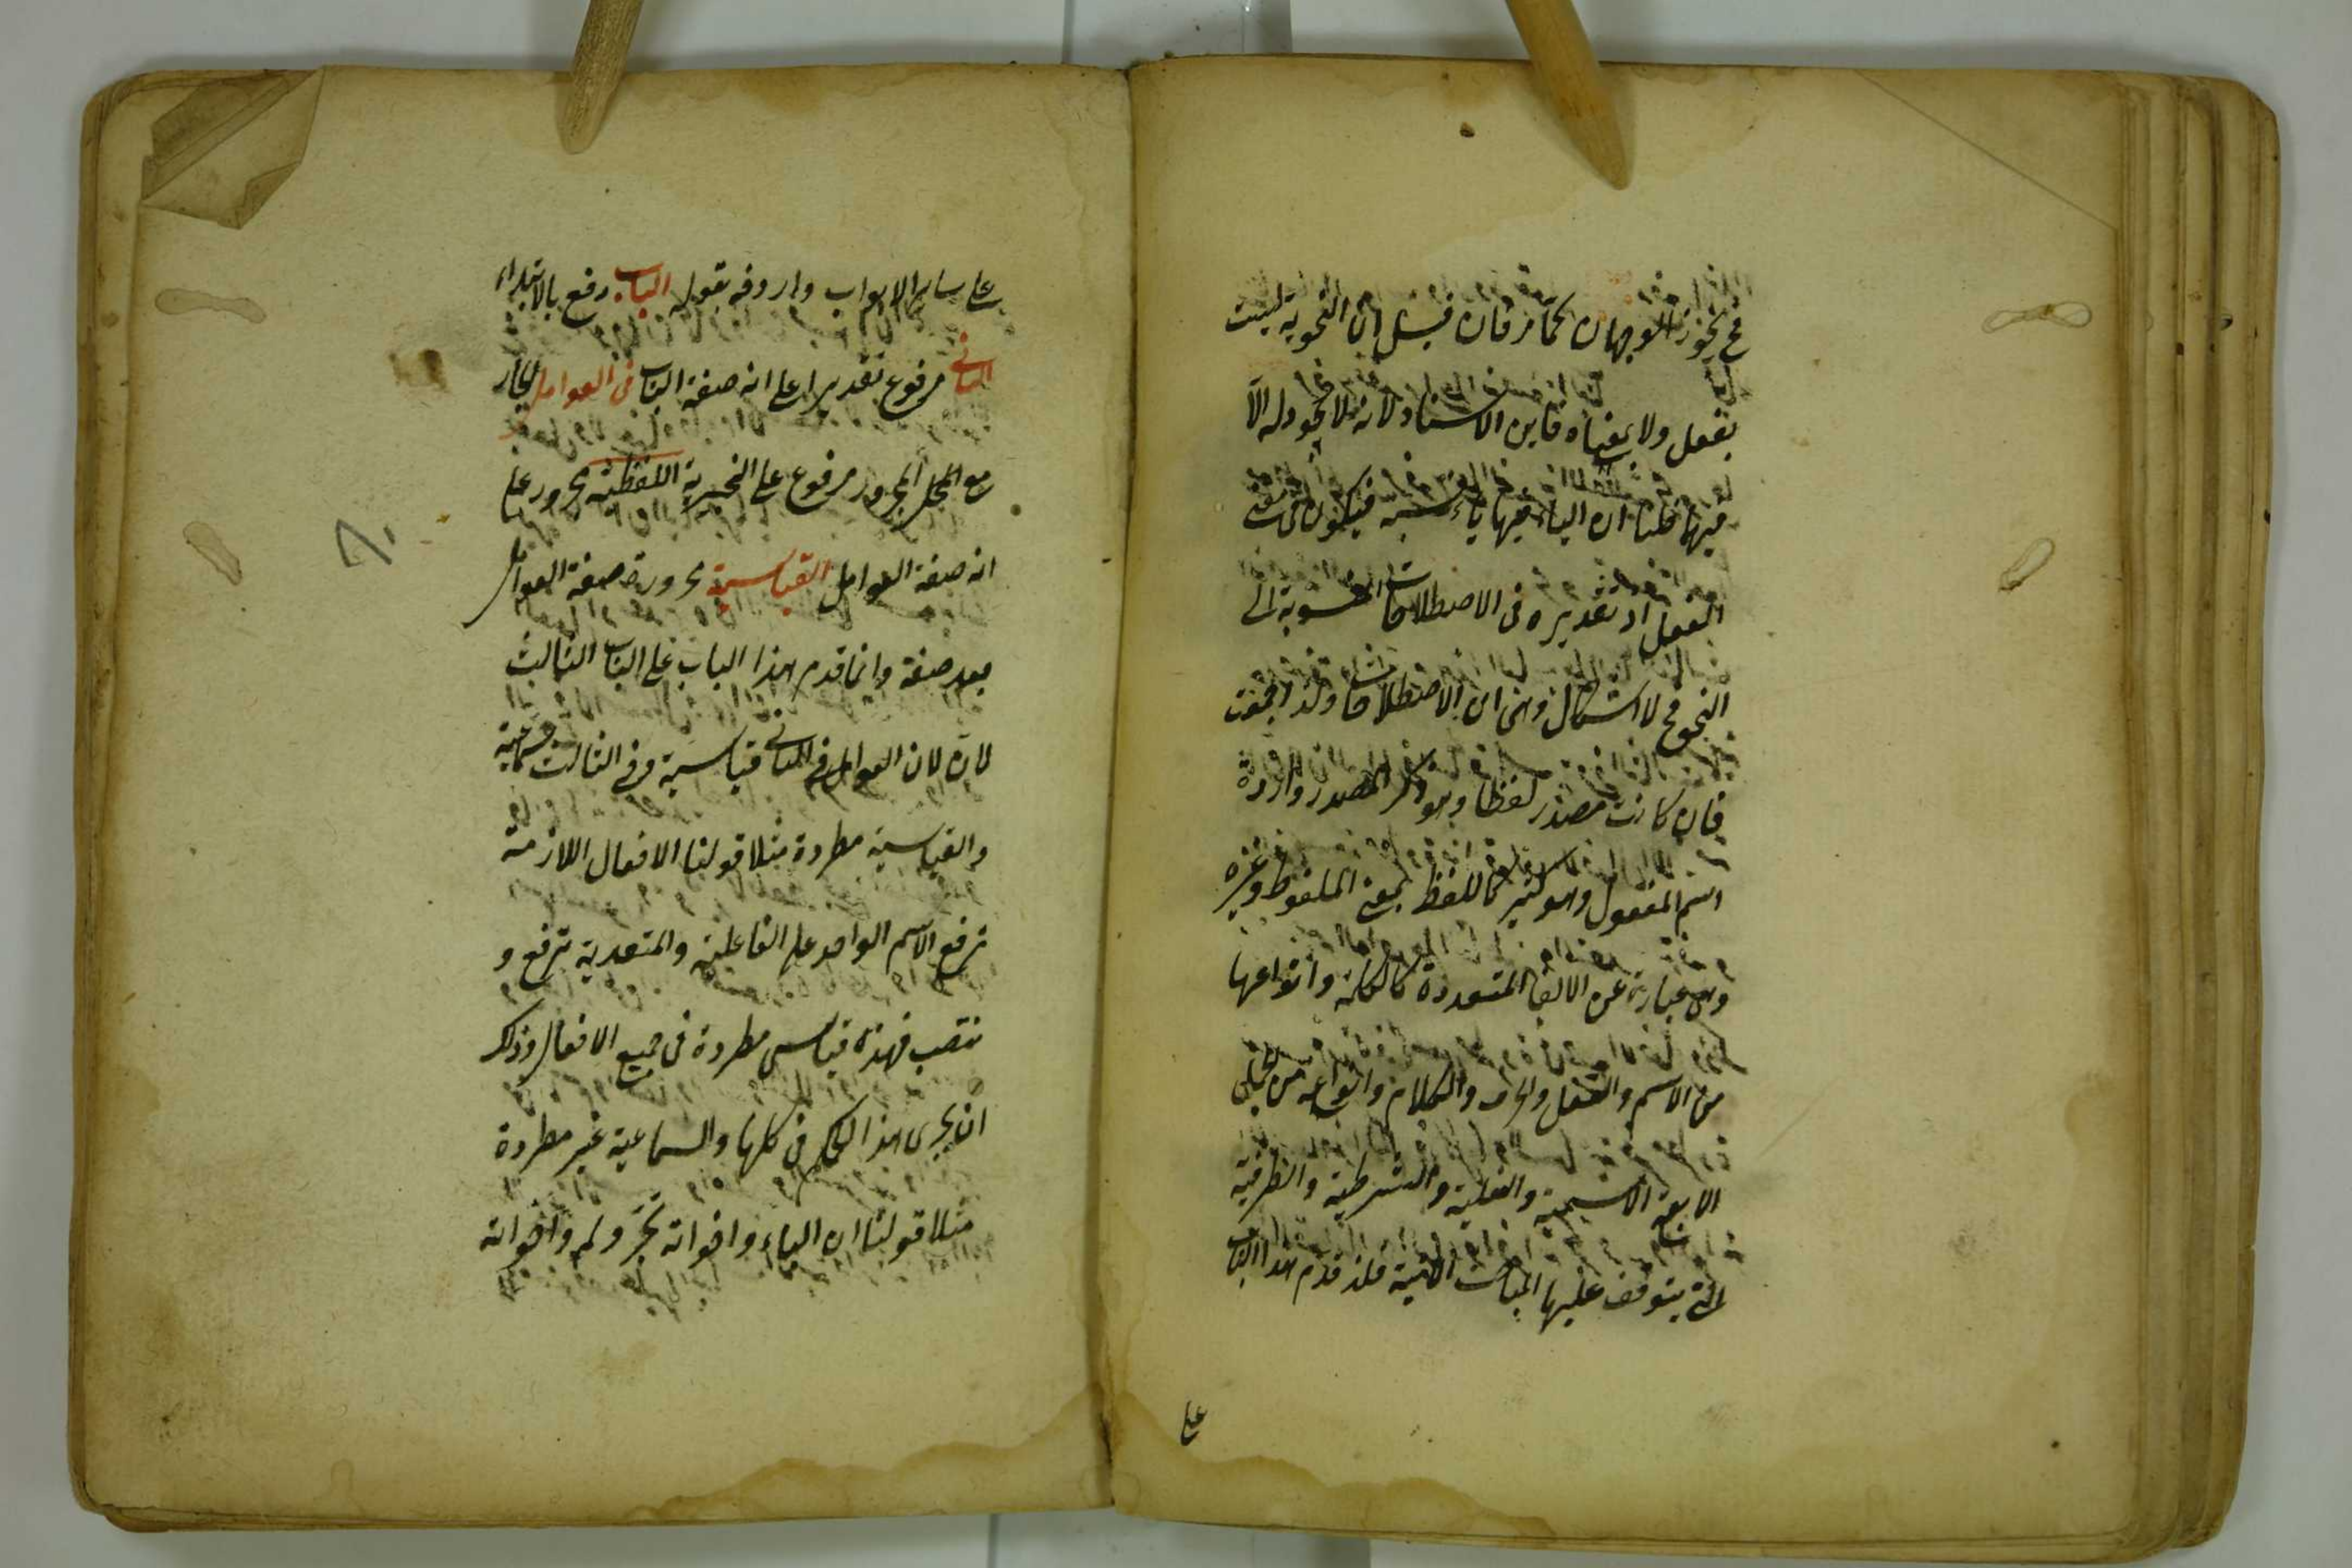 فح يجوز الوجهان كما مر فان قيل ان النحوية ليست
بفعل ولا بمعناه فاين الاسناد لانه لا يجوز له الا
فيها قلنا ان الياء فيها ياء نسبة فيكون في معنى
الفعل اذ تقديره في الاصطلاحات المنسوبة الى
النحو فح لا اشكال وهي اى الاصطلاحات ولذا جمعت
فان كانت مصدر لفظا وهو ذكر المصدر وارادة
اسم المفعول وهو كثير كاللفظ بمعنى الملفوظ وغيره
وهي عبارة عن الالفاظ المتعددة كالكلمة وانواعها
من الاسم والفعل والحرف والكلام وانواعه من الجمل
الاربعة الاسمية والفعلية والشرطية والظرفية
التى يتوقف عليها المباحث الاتية فلذ قدم هذا الباب
على
على سائر الابواب واردفه بقوله الباب رفع بالابتداء
الثانى مرفوع تقديرا على انه صفة الباب فى العوامل الجار
مع المجرور مرفوع على الخبرية اللفظية مجرور على
انه صفة العوامل القياسية مجرورة صفة العوامل
بعد صفة وانما قدم هذا الباب على الباب الثالث
لان لان العوامل فى الثانى قياسية وفى الثالث سماعية
والقياسية مطردة مثلا قولنا الافعال اللازمة
ترفع الاسم الواحد على الفاعلية والمتعدية ترفع و
تنصب فهذه قياسى مطردة فى جميع الافعال وذلك
ان يجرى هذا الحكم فى كلها والسماعية غير مطردة
مثلا قولنا ان الباء واخواته تجر ولم واخواته